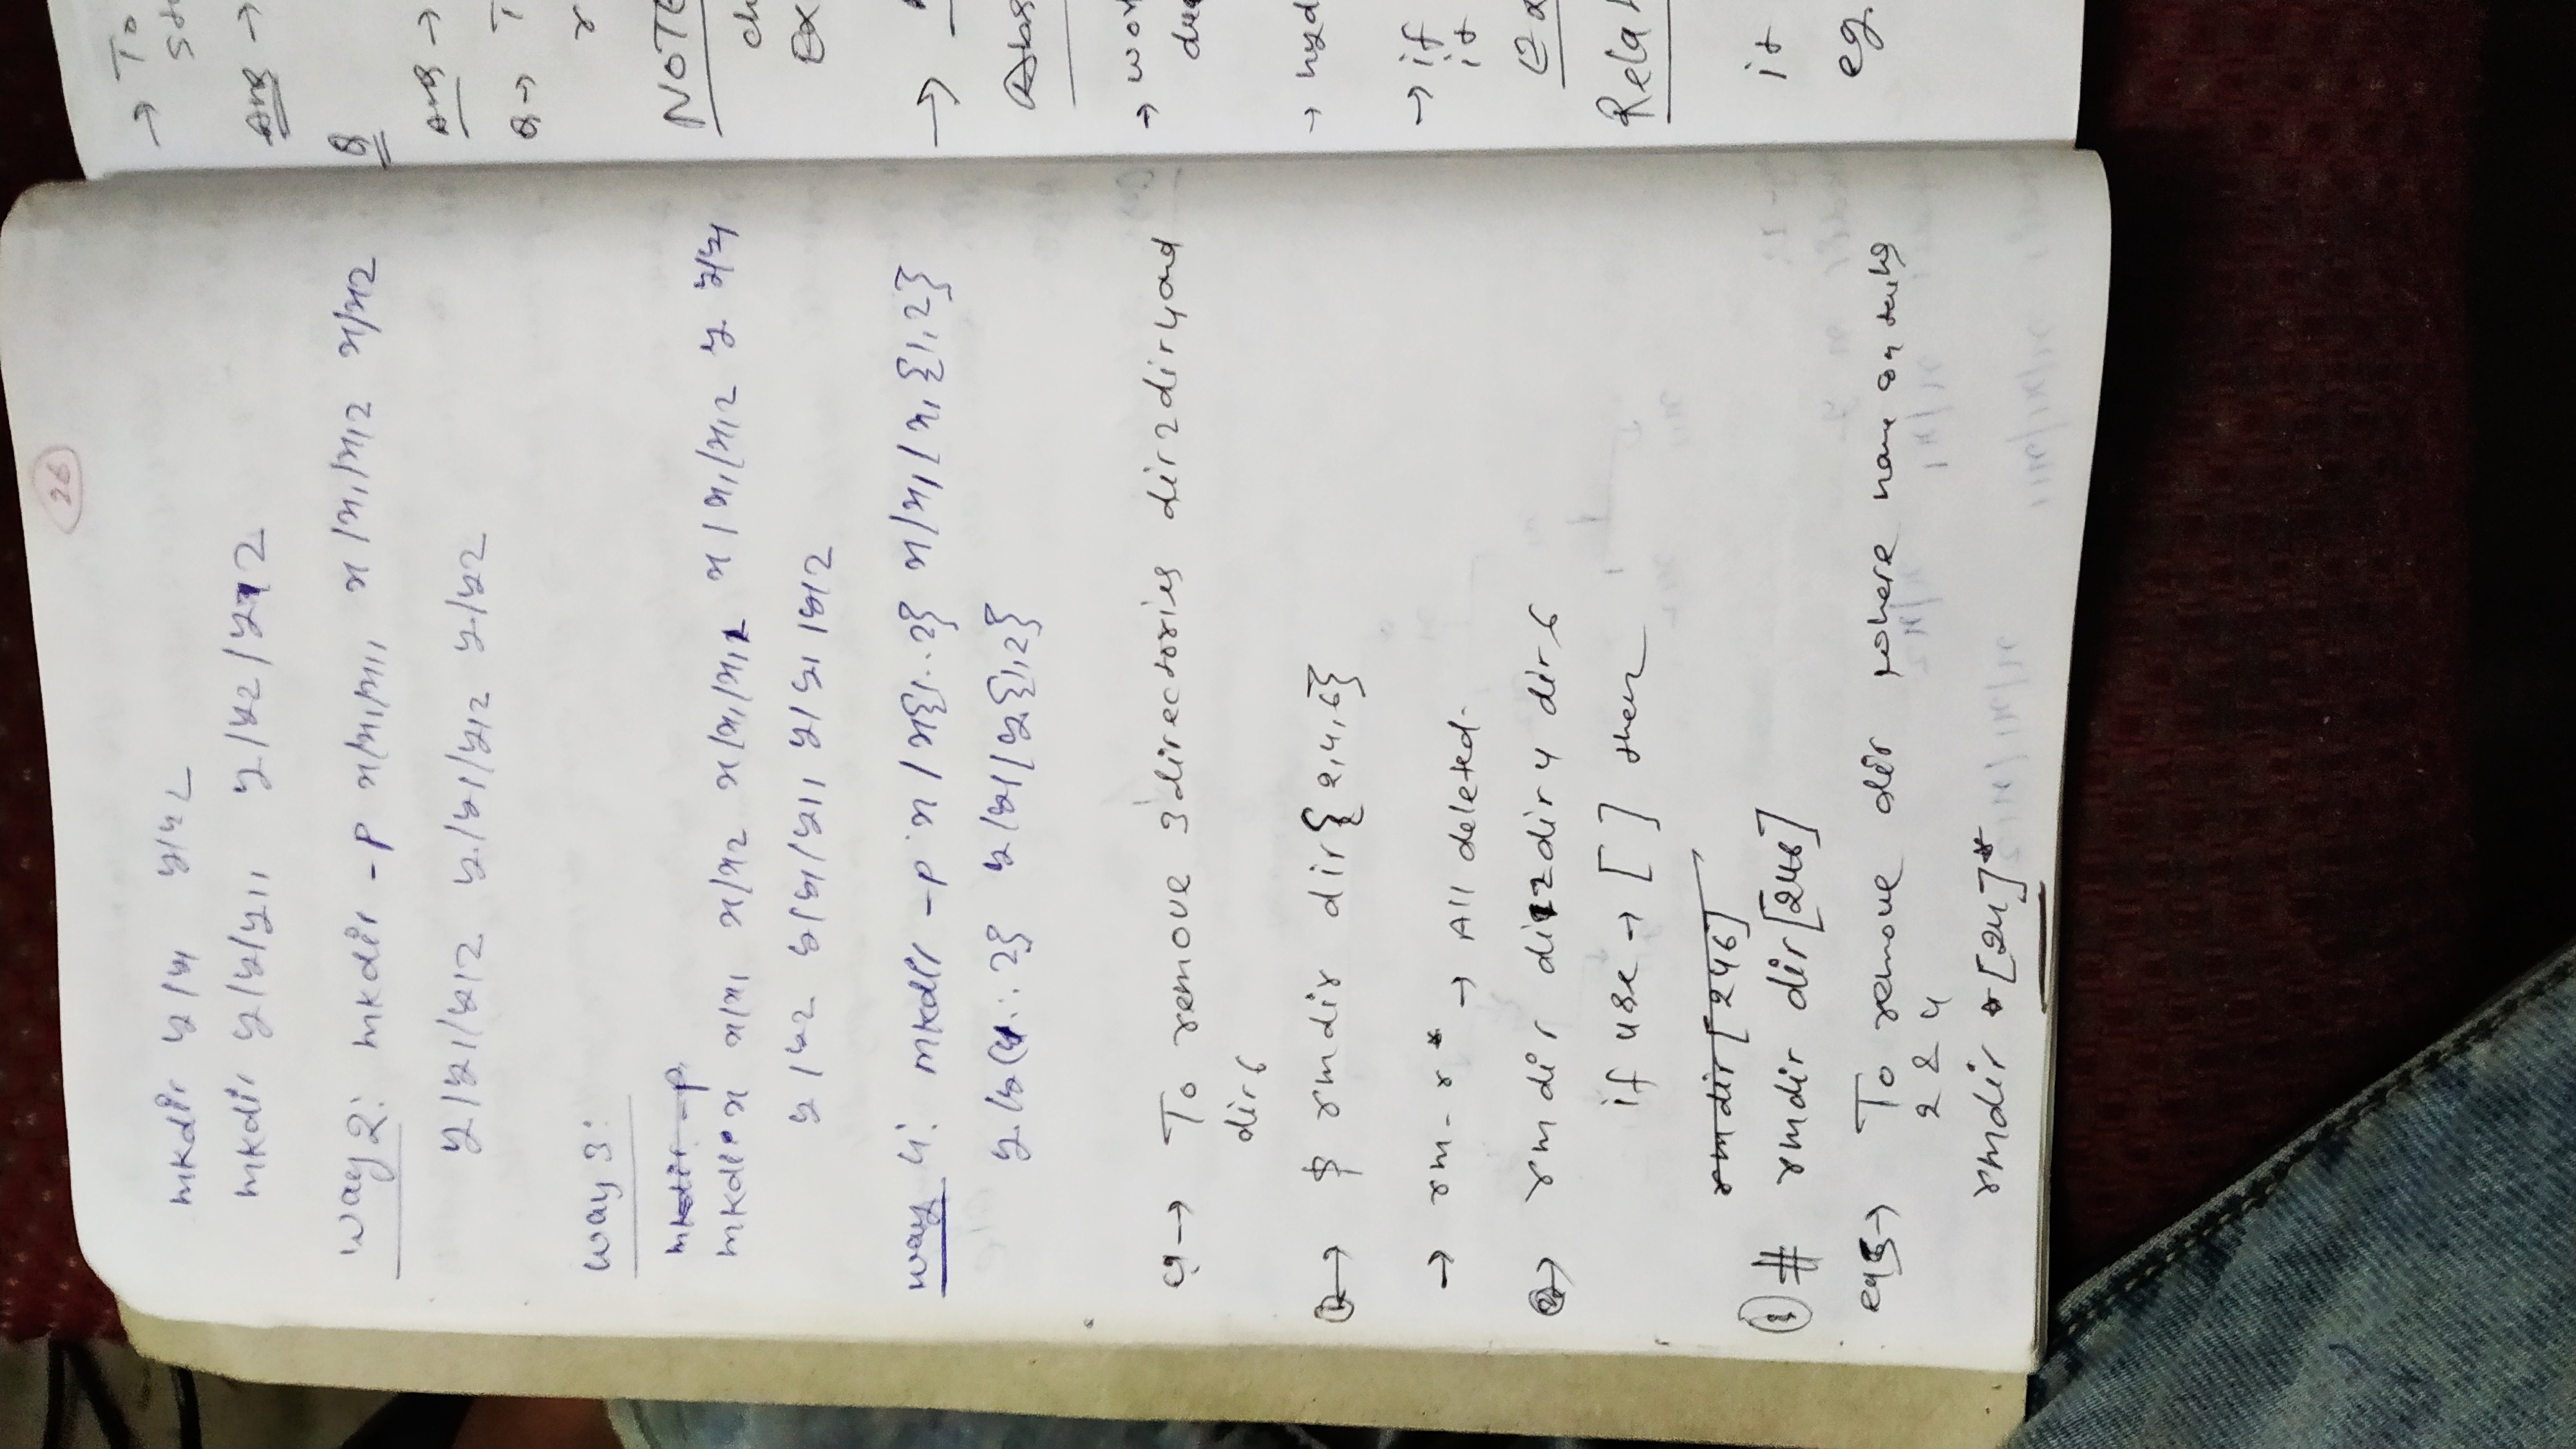 26
mkdir y/y1 y/y2
mkdir y/y/y11 y/y2/y12
way 2: mkdir -p x/x1/x11 x/x1/x12 x/x2
y/y1/y12 y/y1/y12 y/y2
way 3:
mkdir -p
mkdir x x/x1 x/x2 x/x1/x12 x/x1/x12 y y/y1
y/y2 y/y1/y11 y/y1/y12
way 4: mkdir -p x/x{1..2} x/x1/x1{1,2}
y/y{1..2} y/y1/y{1,2}
→ To remove 3 directories dir2 dir4 and
dir6
① → $ rmdir dir{2,4,6}
→ rm -r * → All deleted.
② → rmdir dir2 dir4 dir6
if use → [ ] then
rmdir [246]
③ # rmdir dir[246]
eg → To remove dir where name contains
2 & 4
rmdir *[24]*
→ To
Ans →
Q
Ans →
Q → T
r
NOTE
ch
Ex
→
Abs
→ wor
→ hyd
→ if
it
Ex
Relat
it
eg.